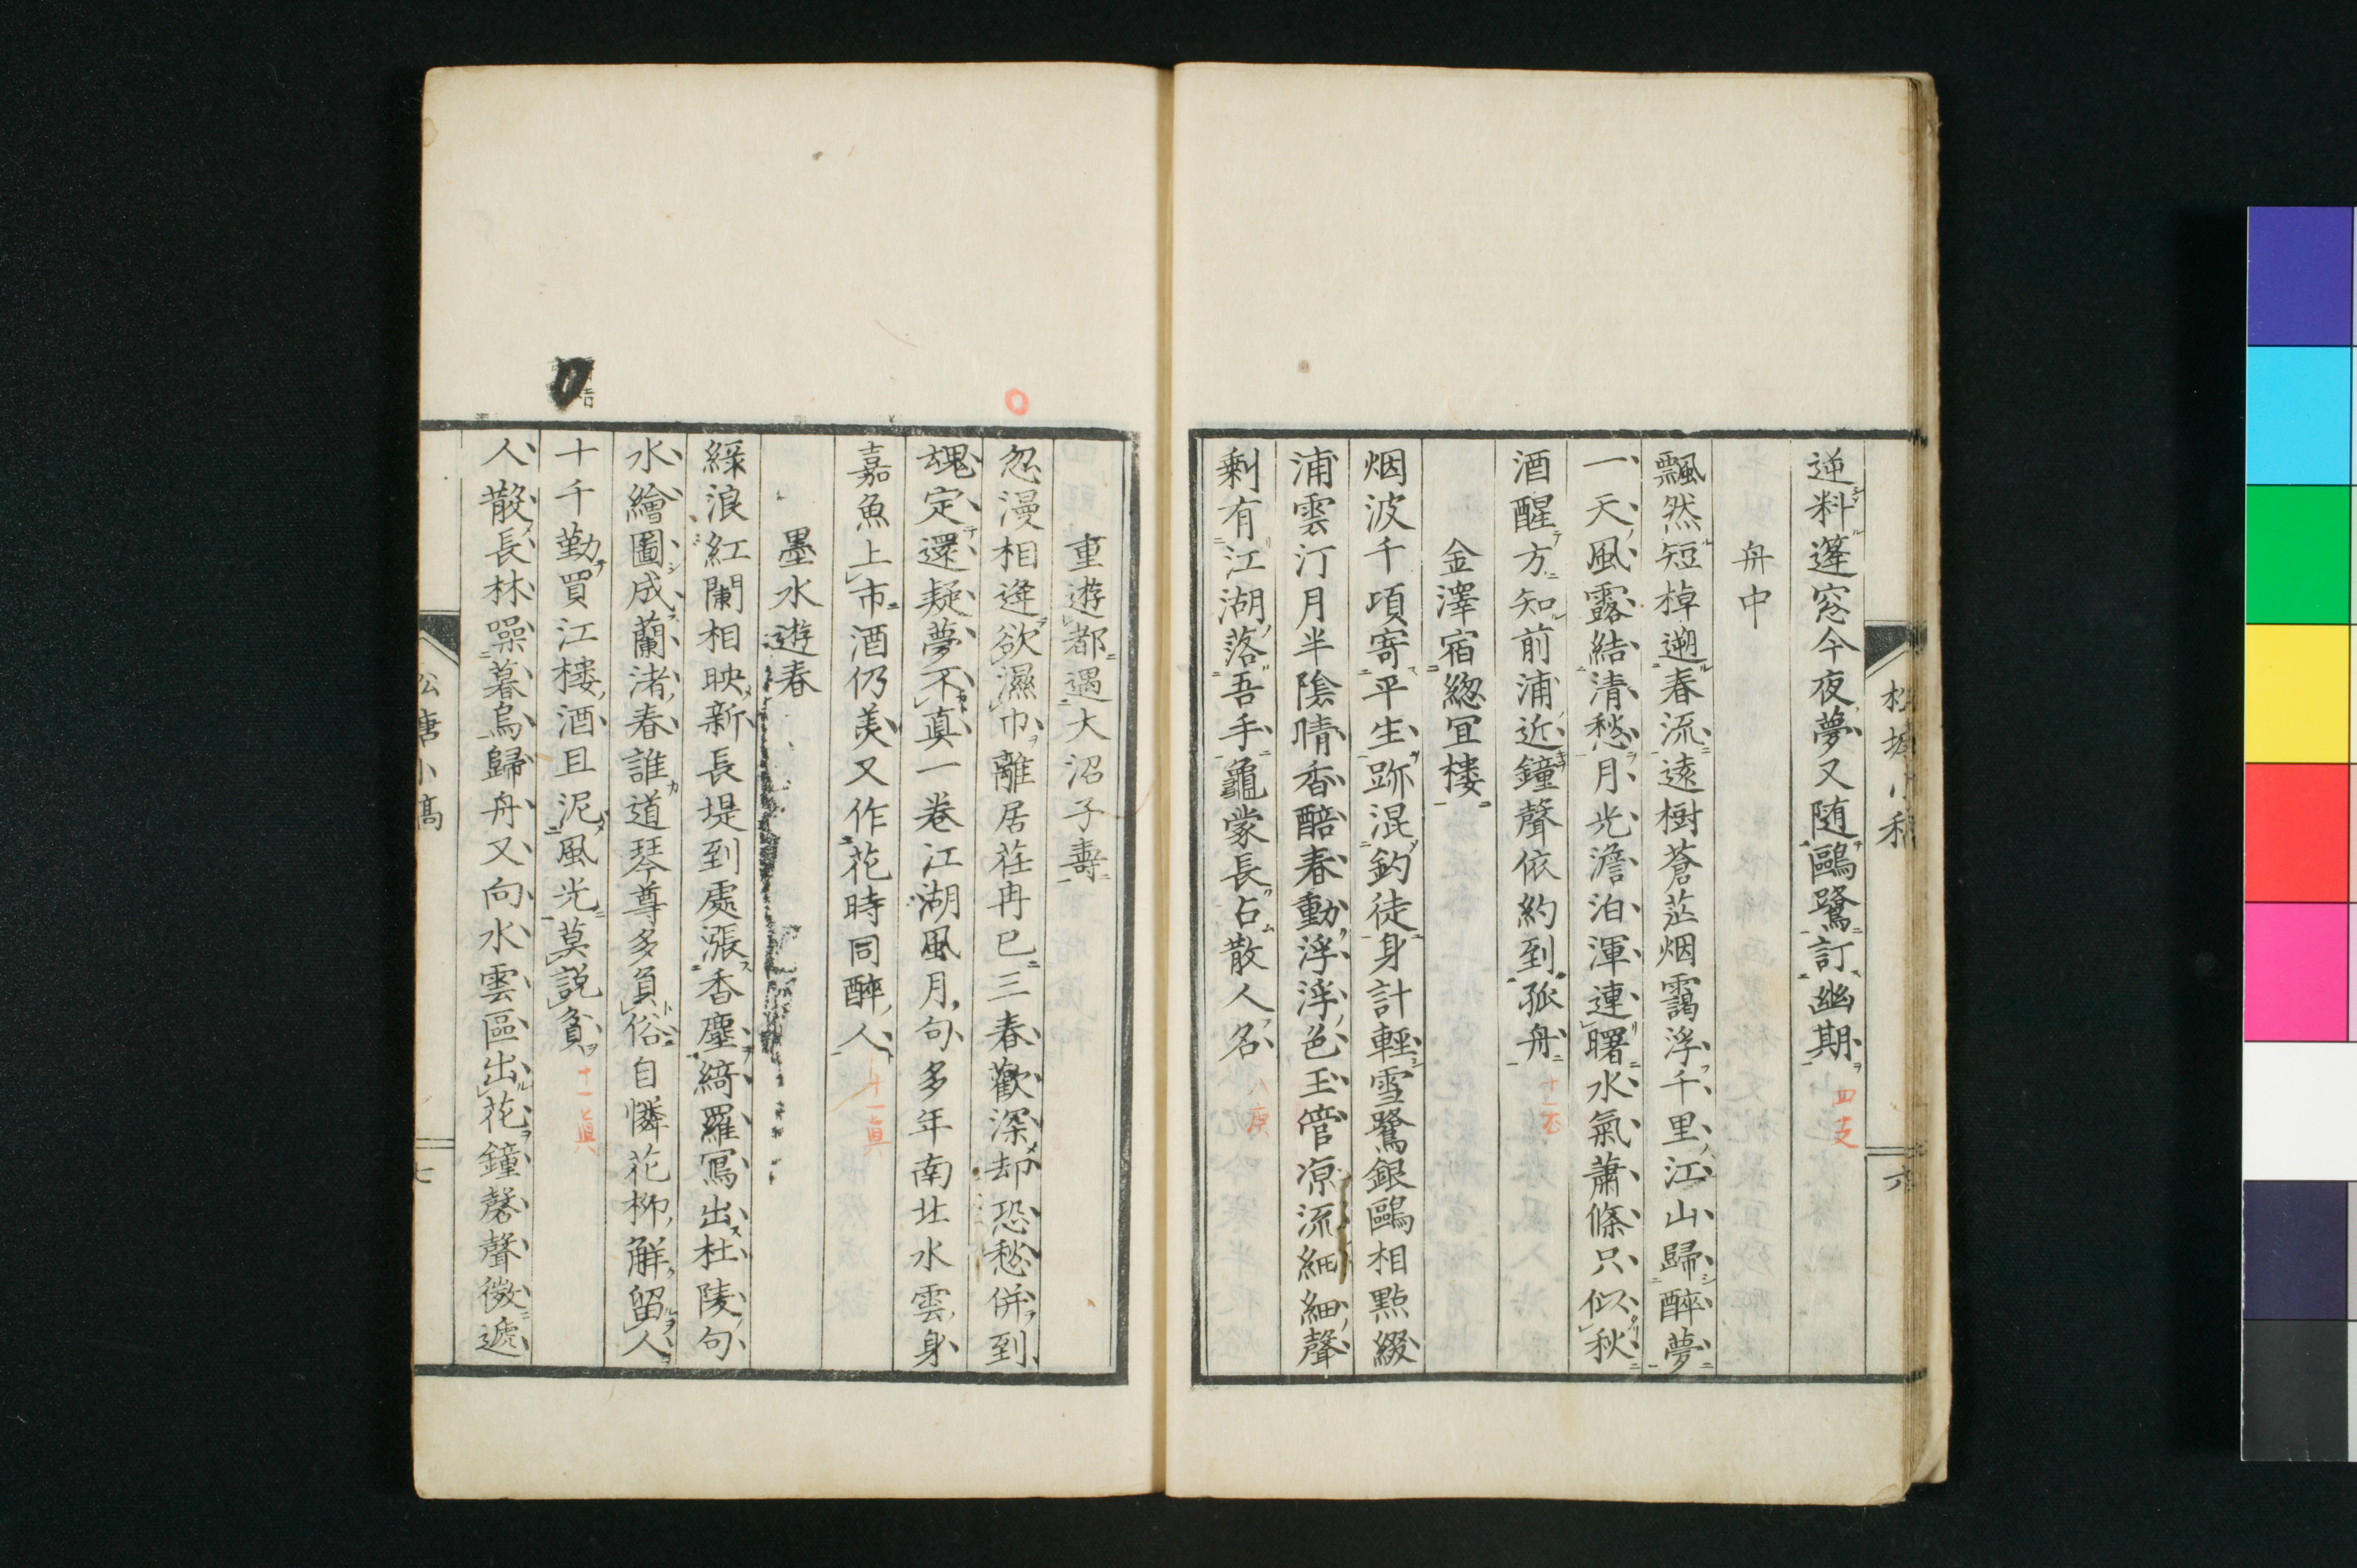 逆料篷窓今夜夢又随鷗鷺訂幽期
四支
舟中
飄然短棹遡春流遠樹蒼茫烟靄浮千里江山歸醉夢
一天風露結清愁月光澹泊渾連曙水氣蕭條只似秋
酒醒方知前浦近鐘聲依約到孤舟
金澤宿緫宜楼
烟波千頃寄平生跡混釣徒身計輕雪鷺銀鷗相點綴
浦雲汀月半陰晴香醅春動浮浮色玉管凉流細細聲
剰有江湖落吾手龜蒙長占散人名
八庚
六
重遊都遇大沼子壽
忽漫相逢欲濕巾離居荏冉已三春歡深却恐愁併到
魂定還疑夢不真一巻江湖風月句多年南北水雲身
嘉魚上市酒仍美又作花時同醉人
十一真
墨水遊春
緑浪紅闌相映新長堤到處漲香塵綺羅寫出杜陵句
水繪圖成蘭渚春誰道琴尊多負俗自憐花柳解留人
十千勤買江楼酒且泥風光莫説貧
十一眞
人散長林噪暮烏歸舟又向水雲區出花鐘磬聲微遞
小稿
七